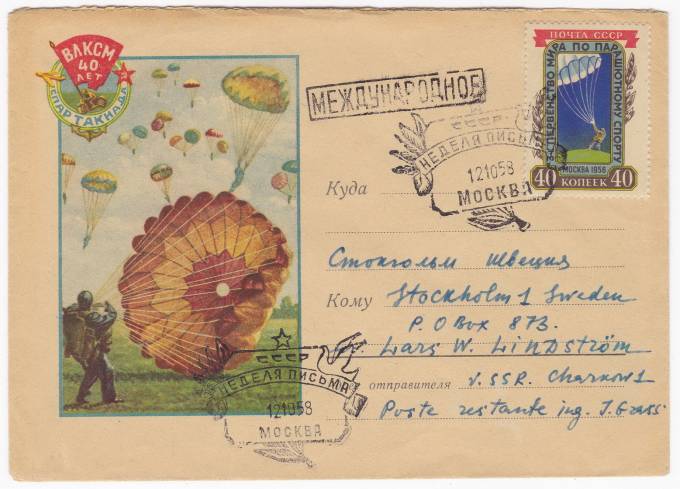 ВЛКСМ
40
ЛЕТ
СПАРТАКИАДА
МЕЖДУНАРОДНОЕ
ПОЧТА СССР
3 ПЕРВЕНСТВО МИРА ПО ПАРАШЮТНОМУ СПОРТУ
МОСКВА 1956
40 КОПЕЕК 40
СССР
НЕДЕЛЯ ПИСЬМА
121058
МОСКВА
Куда
Стокгольм Швеция
Кому Stockholm 1 Sweden
P.O Box 873.
Lars W. LINDSTRÖM
отправителя V.SSR. Charkow 1
Poste restante ing. J. Grass
СССР
НЕДЕЛЯ ПИСЬМА
121058
МОСКВА